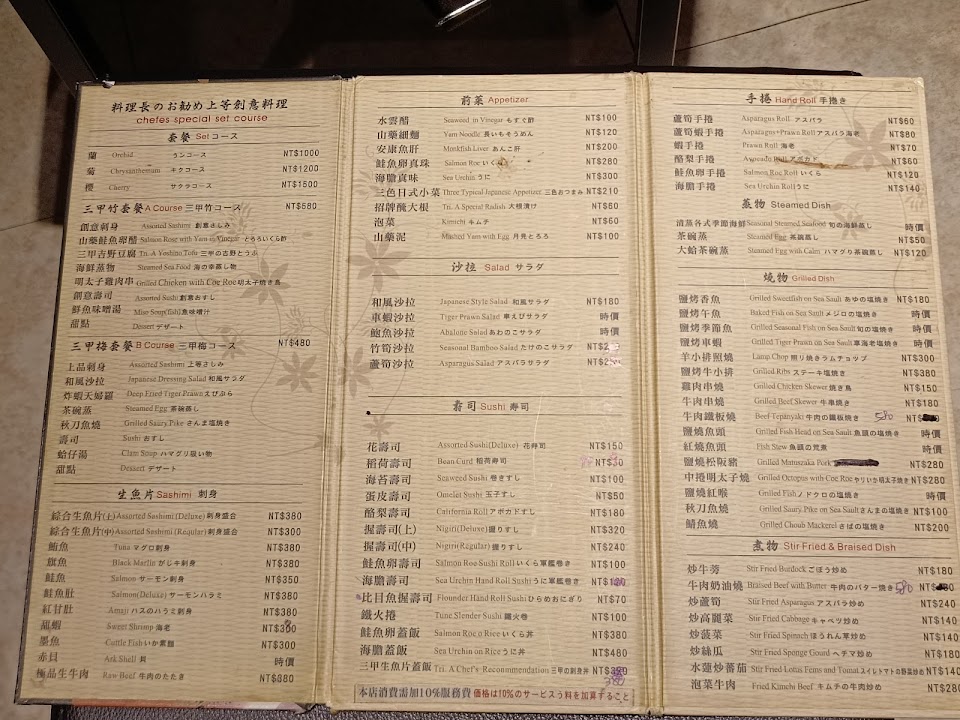 料理長のお勧め上等創意料理
chefes special set course
套餐 Set コース
蘭 Orchid ランコース NT$1000
菊 Chrysanthemum キクコース NT$1200
櫻 Cherry サクラコース NT$1500
三甲竹套餐 A Course 三甲竹コース NT$580
創意刺身 Assorted Sashimi 創意さしみ
山藥鮭魚卵醋 Salmon Rose with Yam in Vinegar とろろいくら酢
三甲吉野豆腐 Tri. A Yoshino Tofu 三甲の吉野とうふ
海鮮蒸物 Steamed Sea Food 海の幸蒸し物
明太子雞肉串 Grilled Chicken with Coe Roe 明太子焼き鳥
創意壽司 Assorted Sushi 創意おすし
鮮魚味噌湯 Miso Soup(fish) 魚味噌汁
甜點 Dessert デザート
三甲梅套餐 B Course 三甲梅コース NT$480
上品刺身 Assorted Sashimi 上等さしみ
和風沙拉 Japanese Dressing Salad 和風サラダ
炸蝦天婦羅 Deep Fried Tiger Prawn えびぷら
茶碗蒸 Steamed Egg 茶碗蒸し
秋刀魚燒 Grilled Saury Pike さんま塩焼き
壽司 Sushi おすし
蛤仔湯 Clam Soup ハマグリ吸い物
甜點 Dessert デザート
生魚片 Sashimi 刺身
綜合生魚片(上) Assorted Sashimi (Deluxe) 刺身盛合 NT$380
綜合生魚片(中) Assorted Sashimi (Reqular) 刺身盛合 NT$300
鮪魚 Tuna マグロ刺身 NT$380
旗魚 Black Marlin かじキ刺身 NT$380
鮭魚 Salmon サーモン刺身 NT$350
鮭魚肚 Salmon(Deluxe) サーモンハラミ NT$380
紅甘肚 Amaji ハスのハラミ刺身 NT$380
甜蝦 Sweet Shrimp 海老
墨魚 Cuttle Fish いか素麺 NT$300
赤貝 Ark Shell 貝 時價
極品生牛肉 Raw Beef 牛肉のたたき NT$880
前菜 Appetizer
水雲醋 Seaweed in Vinegar もずく酢 NT$100
山藥細麵 Yam Noodle 長いもそうめん NT$120
安康魚肝 Monkfish Liver あんこ肝 NT$200
鮭魚卵真珠 Salmon Roe いくら NT$280
海膽真味 Sea Urchin うに NT$300
三色日式小菜 Three Typical Japanese Appetizer 三色おつまみ NT$210
招牌醃大根 Tri. A Special Radish 大根漬け NT$60
泡菜 Kimichi キムチ NT$60
山藥泥 Mashed Yam with Egg 月見とろろ NT$100
沙拉 Salad サラダ
和風沙拉 Japanese Style Salad 和風サラダ NT$180
車蝦沙拉 Tiger Prawn Salad 車えびサラダ 時價
鮑魚沙拉 Abalone Salad あわのこサラダ 時價
竹筍沙拉 Seasonal Bamboo Salad たけのこサラダ
蘆筍沙拉 Asparagus Salad アスパラサラダ
壽司 Sushi 寿司
花壽司 Assorted Sushi(Deluxe) 花寿司 NT$150
稻荷壽司 Bean Curd 稻荷寿司
海苔壽司 Seaweed Sushi 巻きすし NT$100
蛋皮壽司 Omelet Sushi 玉子すし NT$50
酪梨壽司 California Roll アボカドすし NT$180
握壽司(上) Nigiri(Deluxe) 握りすし NT$320
握壽司(中) Nigiri(Regular) 握りすし NT$240
鮭魚卵壽司 Salmon Roe Sushi Roll いくら軍艦巻き NT$100
海膽壽司 Sea Urchin Hand Roll Sushi うに軍艦巻き
比目魚握壽司 Flounder Hand Roll Sushi ひらめおにぎり NT$70
鐵火捲 Tune Slender Sushi 鐵火卷 NT$100
鮭魚卵蓋飯 Salmon Roe o Rice いくら丼 NT$380
海膽蓋飯 Sea Urchin on Rice うに丼 NT$480
三甲生魚片蓋飯 Tri. A Chef's Recommendation 三甲の刺身丼
本店消費需加10%服務費 価格は10%のサービスう料を加算すること
手捲 Hand Roll 手捲き
蘆筍手捲 Asparagus Roll アスパラ NT$60
蘆筍蝦手捲 Asparagus+Prawn Roll アスパラ海老 NT$80
蝦手捲 Prawn Roll 海老 NT$70
酪梨手捲 Avocado Roll アボカド NT$60
鮭魚卵手捲 Salmon Roe Roll いくら NT$120
海膽手捲 Sea Urchin Roll うに NT$140
蒸物 Steamed Dish
清蒸各式季節海鮮 Seasonal Steamed Seafood 旬の海鮮蒸し 時價
茶碗蒸 Steamed Egg 茶碗蒸し NT$50
大蛤茶碗蒸 Steamed Egg with Calm ハマグり茶碗蒸し NT$120
燒物 Grilled Dish
鹽烤香魚 Grilled Sweetfish on Sea Sault あゆの塩焼き NT$180
鹽烤午魚 Baked Fish on Sea Sault メジロの塩焼き 時價
鹽烤季節魚 Grilled Seasonal Fish on Sea Sault 旬の塩焼き 時價
鹽烤車蝦 Grilled Tiger Prawn on Sea Sault 車海老塩焼き 時價
羊小排照燒 Lamp Chop 照リ焼きラムチョップ NT$300
鹽烤牛小排 Grilled Ribs ステーキ塩焼き NT$380
雞肉串燒 Grilled Chicken Skewer 焼き鳥 NT$150
牛肉串燒 Grilled Beef Skewer 牛串焼き NT$180
牛肉鐵板燒 Beef Tepanyaki 牛肉の鐵板焼き 580
鹽燒魚頭 Grilled Fish Head on Sea Sault 魚頭の塩焼き 時價
紅燒魚頭 Fish Stew 魚頭の荒煮 時價
鹽燒松阪豬 Grilled Matsuzaka Pork NT$280
中捲明太子燒 Grilled Octopus with Coe Roe やりいか明太子焼き NT$280
鹽燒紅喉 Grilled Fish ノドクロの塩焼き 時價
秋刀魚燒 Grilled Saury Pike on Sea Sault さんまの塩焼き NT$100
鯖魚燒 Grilled Choub Mackerel さばの塩焼き NT$200
煮物 Stir Fried & Braised Dish
炒牛蒡 Stir Fried Burdock ごぼう炒め NT$180
牛肉奶油燒 Braised Beef with Butter 牛肉のバター焼き 580
炒蘆筍 Stir Fried Asparagus アスパラ炒め NT$240
炒高麗菜 Stir Fried Cabbage キャベツ炒め NT$140
炒菠菜 Stir Fried Spinach ほうれん草炒め NT$140
炒絲瓜 Stir Fried Sponge Gourd ヘチマ炒め NT$180
水蓮炒蕃茄 Stir Fried Lotus Fems and Tomat スイレトマトの野菜炒め NT$140
泡菜牛肉 Fried Kimichi Beef キムチの牛肉炒め NT$280